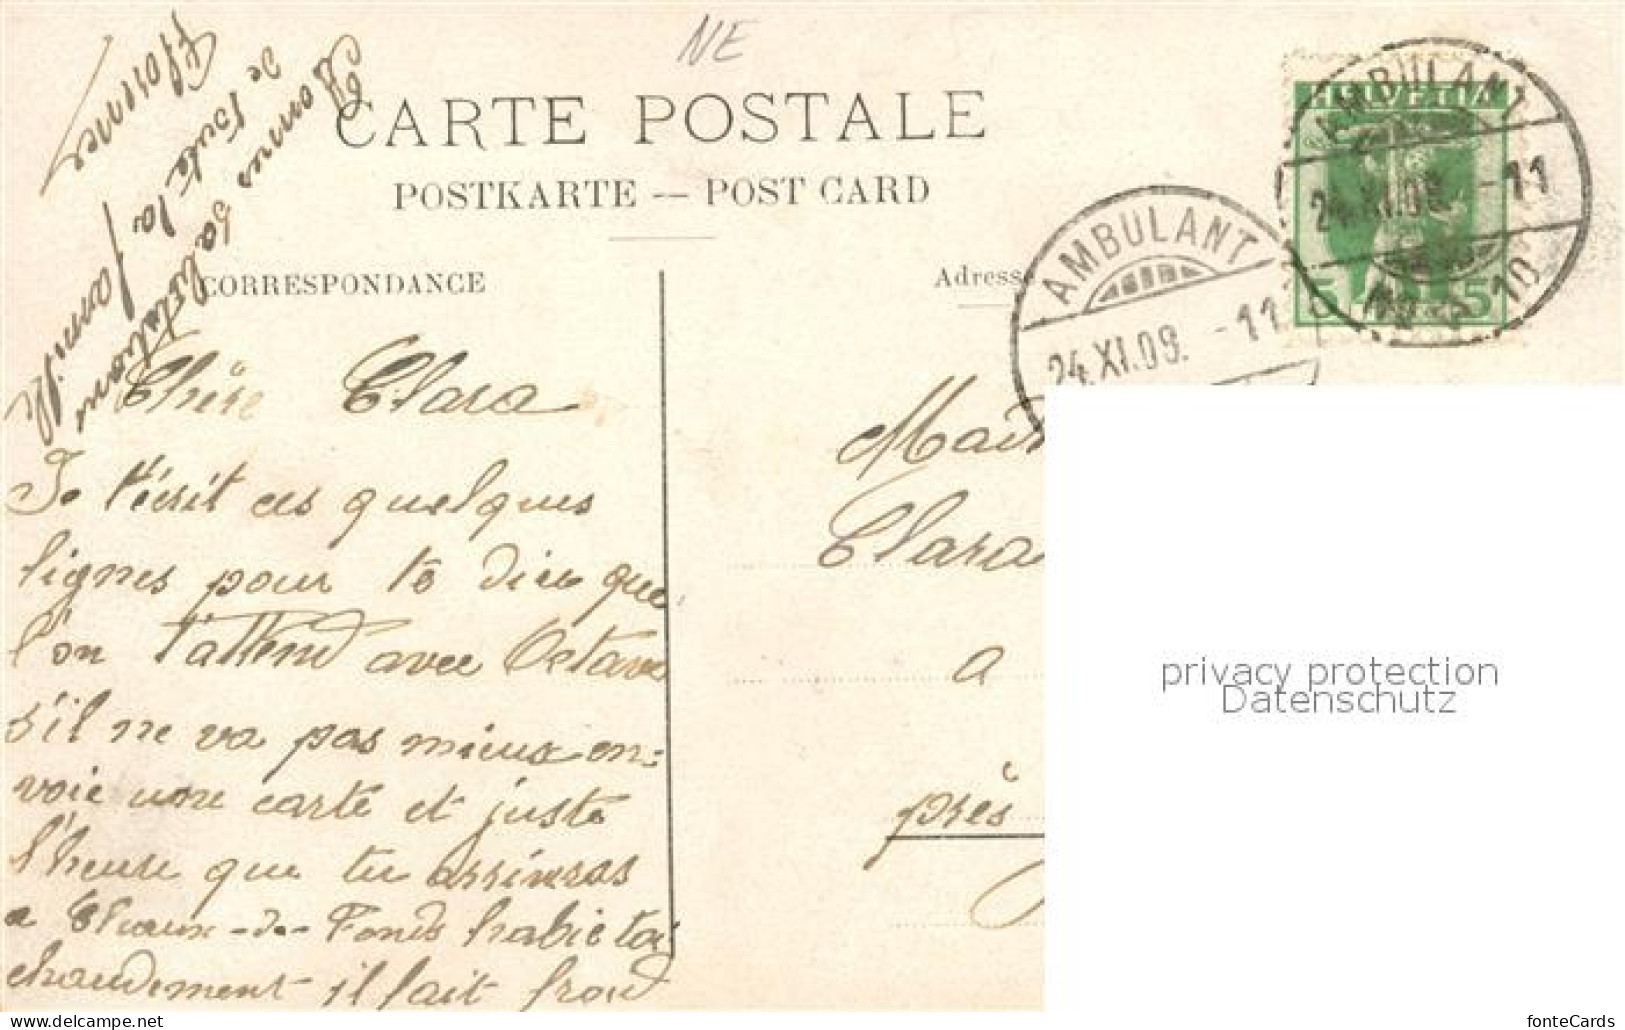 NE
CARTE POSTALE
POSTKARTE — POST CARD
CORRESPONDANCE
Adresse
HELVETIA
5 5
AMBULANT
24.XI.09. -11
No 10
AMBULANT
24.XI.09. -11
Chère Clara
Je t'écrit ces quelques
lignes pour te dire que
l'on t'attend avec Octave
s'il ne va pas mieux en=
voie une carte et juste
l'heure que tu arriveras
a Chaux-de-Fonds habie toi
chaudement il fait froid
Bonnes salutations
de toute la famille
Clara
a
près
privacy protection
Datenschutz
www.ansichtskarten-center.de
fonteCards